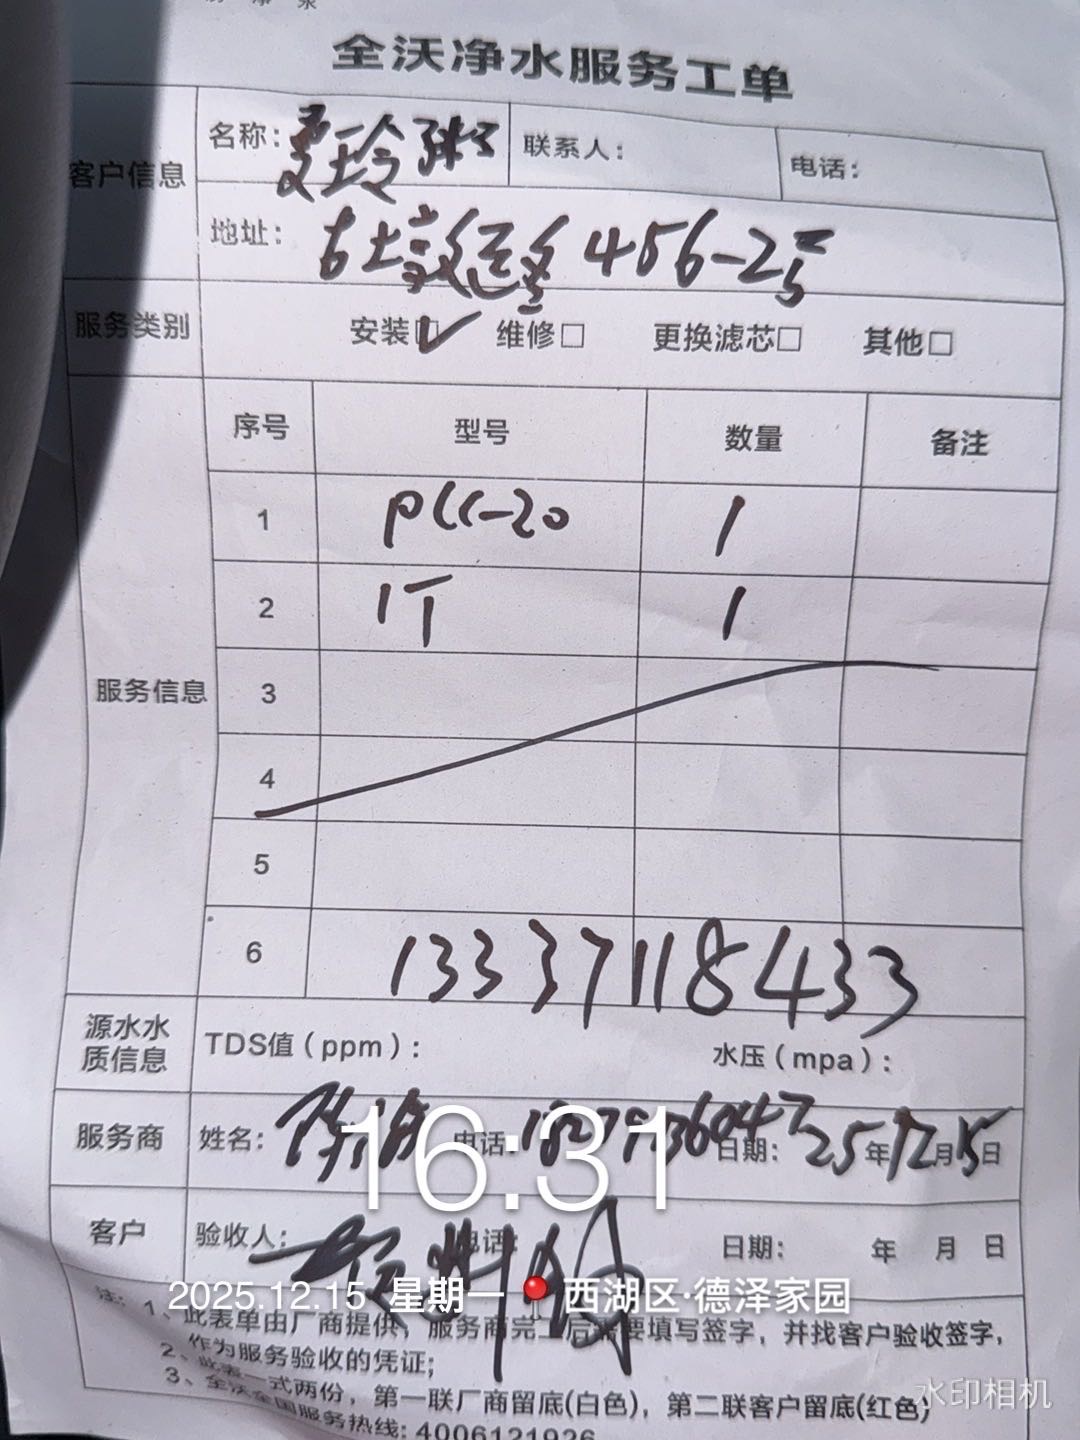 全沃净水服务工单
客户信息 名称：夏玲粥 联系人： 电话：
地址：古墩路456-2号
服务类别 安装☑ 维修□ 更换滤芯□ 其他□
服务信息 序号 型号 数量 备注
1 PCC-20 1
2 1T 1
3
4
5
6 13337118433
源水水质信息 TDS值（ppm）： 水压（mpa）：
服务商 姓名： 电话： 日期：25年12月15日
客户 验收人： 电话： 日期： 年 月 日
16:31
2025.12.15 星期一 西湖区·德泽家园
注：1、此表单由厂商提供，服务商完工后需要填写签字，并找客户验收签字，
作为服务验收的凭证；
2、此表一式两份，第一联厂商留底(白色)，第二联客户留底(红色)
3、全沃全国服务热线：4006121926
水印相机